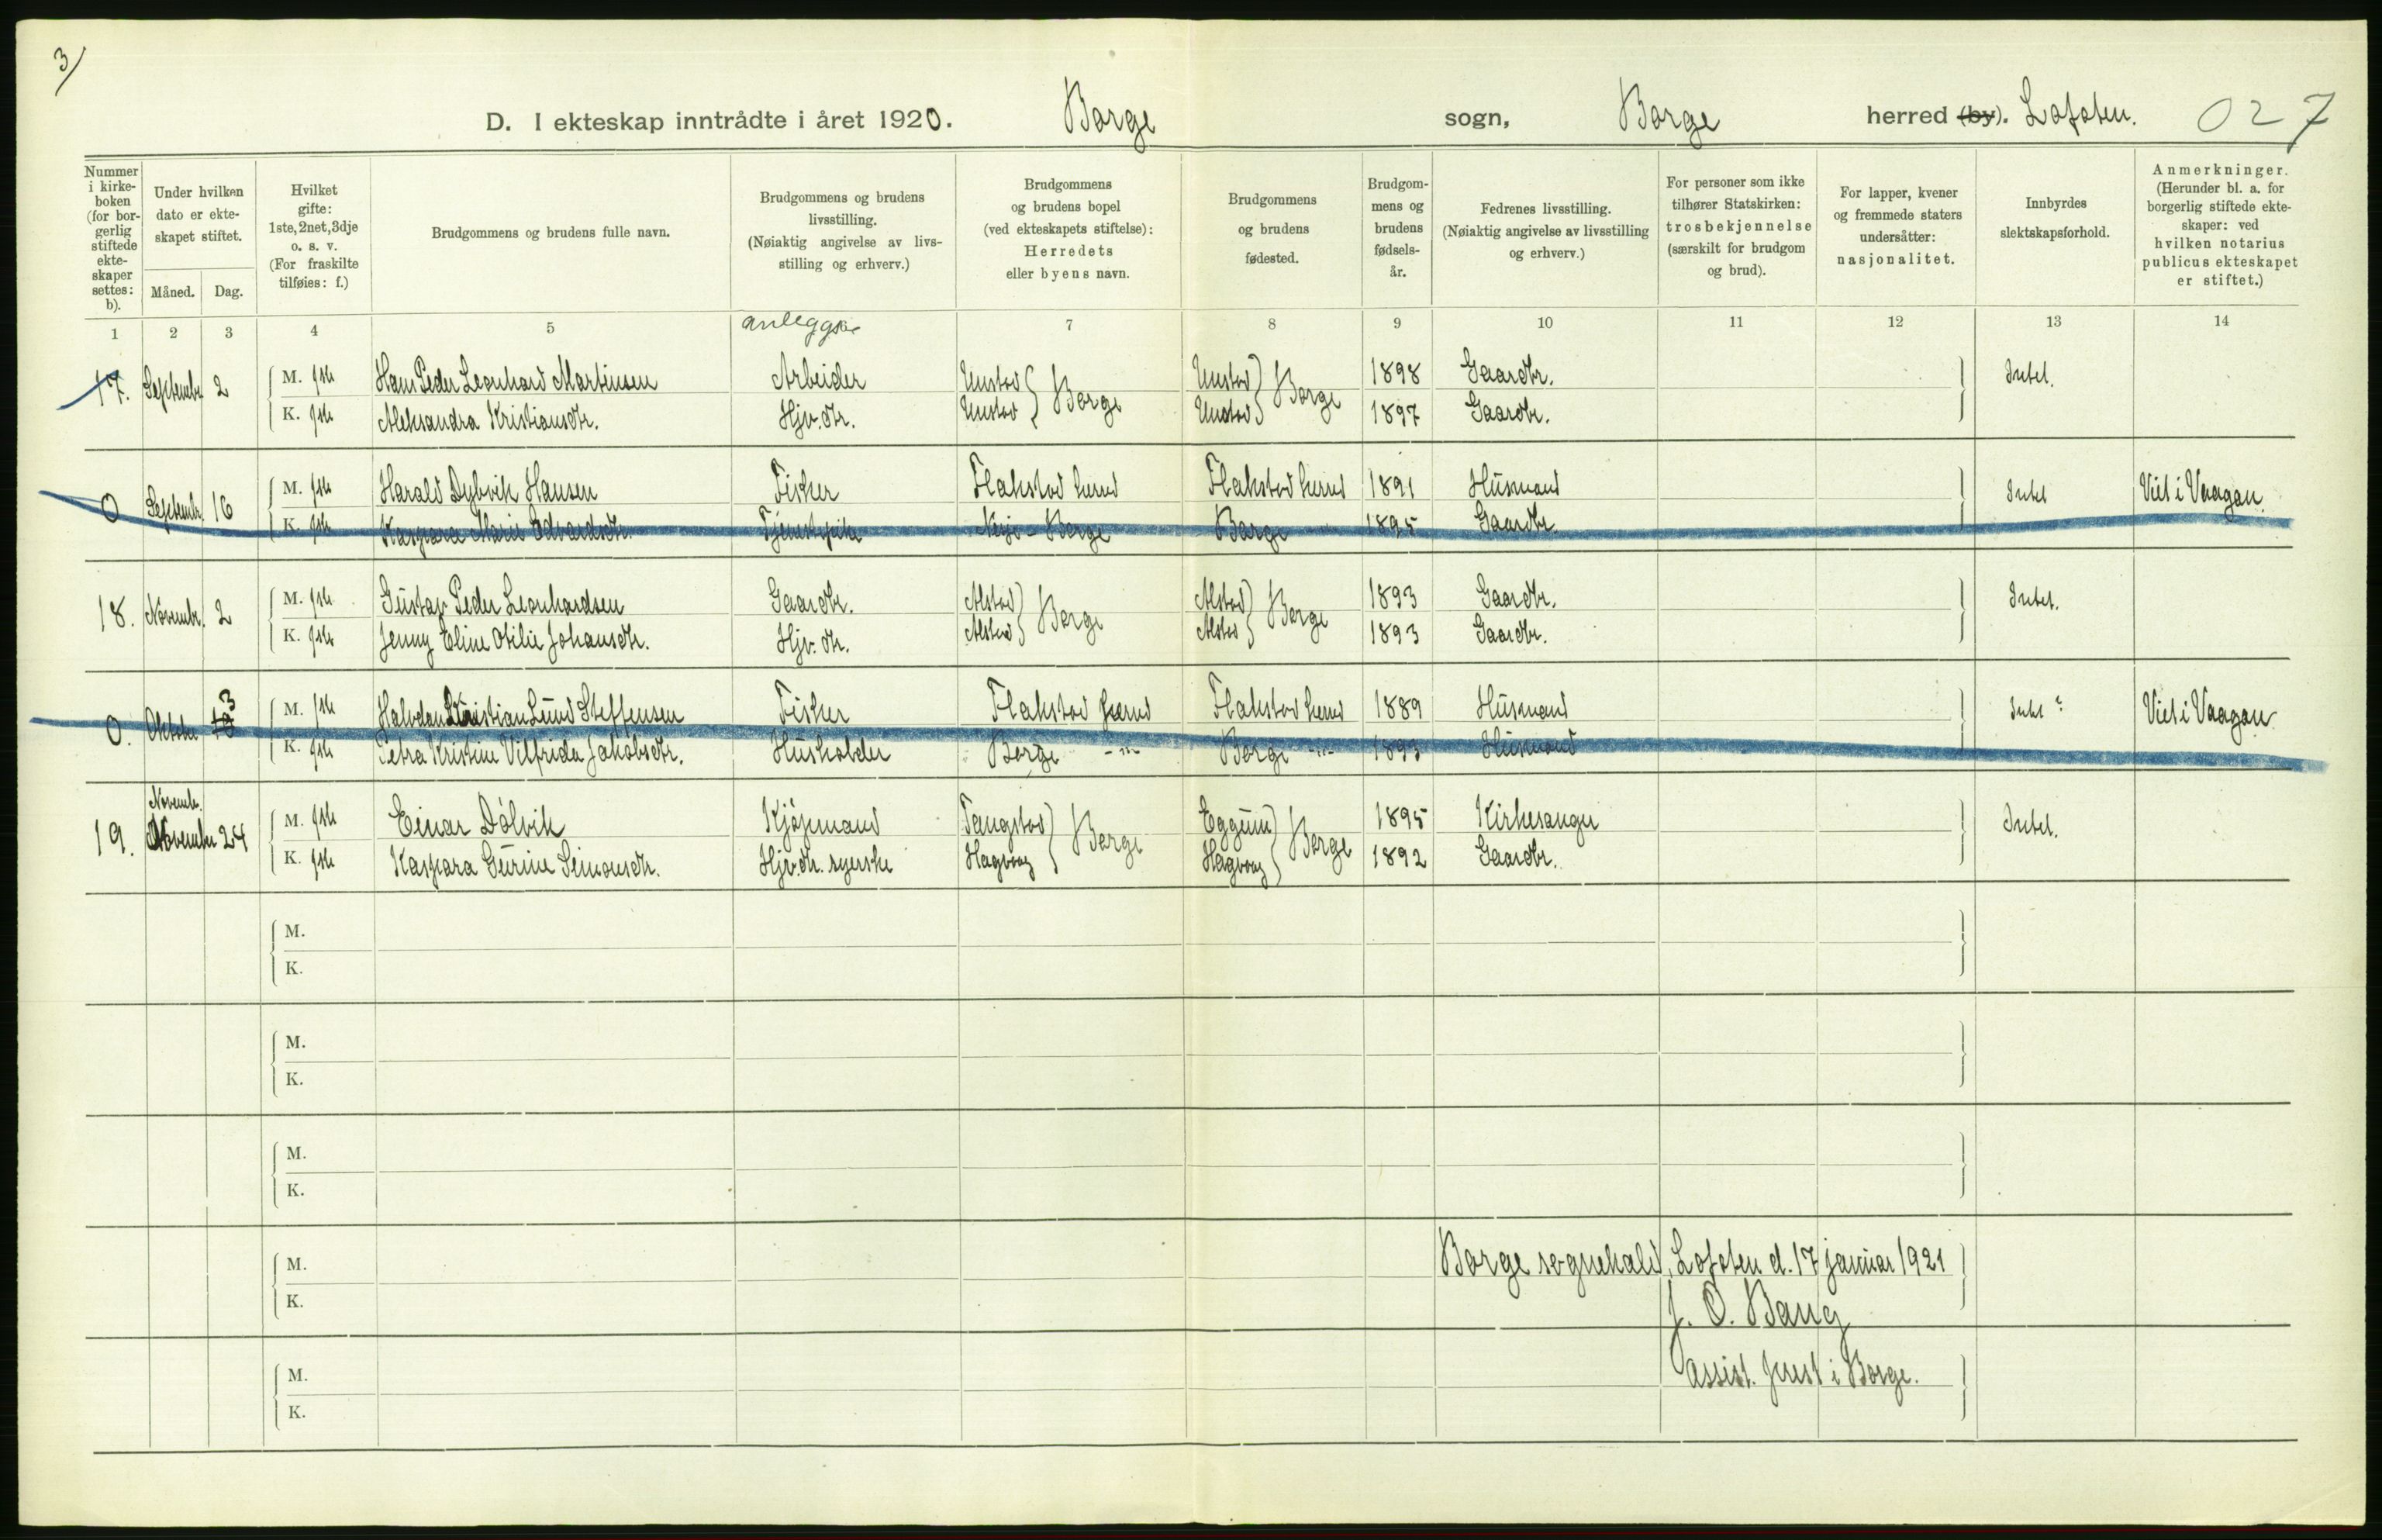 3/
D. I ekteskap inntrådte i året 1920. Borge sogn, Borge herred (by). Lofoten. 027
Nummer i kirkeboken (for borgerlig stiftede ekteskaper settes: b).
Under hvilken dato er ekteskapet stiftet.
Måned. Dag.
Hvilket gifte: 1ste, 2net, 3dje o. s. v. (For fraskilte tilføies: f.)
Brudgommens og brudens fulle navn.
Brudgommens og brudens livsstilling. (Nøiaktig angivelse av livsstilling og erhverv.)
Brudgommens og brudens bopel (ved ekteskapets stiftelse): Herredets eller byens navn.
Brudgommens og brudens fødested.
Brudgommens og brudens fødselsår.
Fedrenes livsstilling. (Nøiaktig angivelse av livsstilling og erhverv.)
For personer som ikke tilhører Statskirken: trosbekjennelse (særskilt for brudgom og brud).
For lapper, kvener og fremmede staters undersåtter: nasjonalitet.
Innbyrdes slektskapsforhold.
Anmerkninger. (Herunder bl. a. for borgerlig stiftede ekteskaper: ved hvilken notarius publicus ekteskapet er stiftet.)
1 2 3 4 5 7 8 9 10 11 12 13 14
17. September 2 M. 1ste Hans Peder Leonhard Martinsen Arbeider Unstad Borge Unstad Borge 1898 Gaardbr. Intet.
K. 1ste Aleksandra Kristiansdtr. Hjv. dtr. Unstad Unstad 1897 Gaardbr.
0 Septembr. 16 M. 1ste Harald Dybvik Hansen Fisker Flakstad herred Flakstad herred 1891 Husmand Intet Viet i Vaagan.
K. 1ste Kaspara Marie Edvardsdtr. Borge Borge 1895 Gaardbr.
18. Novembr. 2 M. 1ste Gustav Peder Leonhardsen Gaardbr. Alstad Borge Alstad Borge 1893 Gaardbr. Intet.
K. 1ste Jenny Eline Otilie Johansdtr. Hjv. dtr. Alstad Alstad 1893 Gaardbr.
0. Oktober 3 M. 1ste Halvdan Kristian Lund Steffensen Fisker Flakstad herred Flakstad herred 1889 Husmand Intet Viet i Vaagan
K. 1ste Petra Kristine Vilfrida Jakobsdtr. Husholder Borge -"- Borge -"- 1893 Husmand
Novemb.
19. November 24 M. 1ste Einar Dólvik Kjøpmand Tangstad Borge Eggum Borge 1895 Kirkesanger Intet.
K. 1ste Kaspara Gurine Simonsdtr. Hjv. dtr. syerske Hagvaag Hagvaag 1892 Gaardbr.
M.
K.
M.
K.
M.
K.
M.
K.
Borge sognekald, Lofoten d. 17 januar 1921
J. O. Baug
M.
K.
assist. prest i Borge.